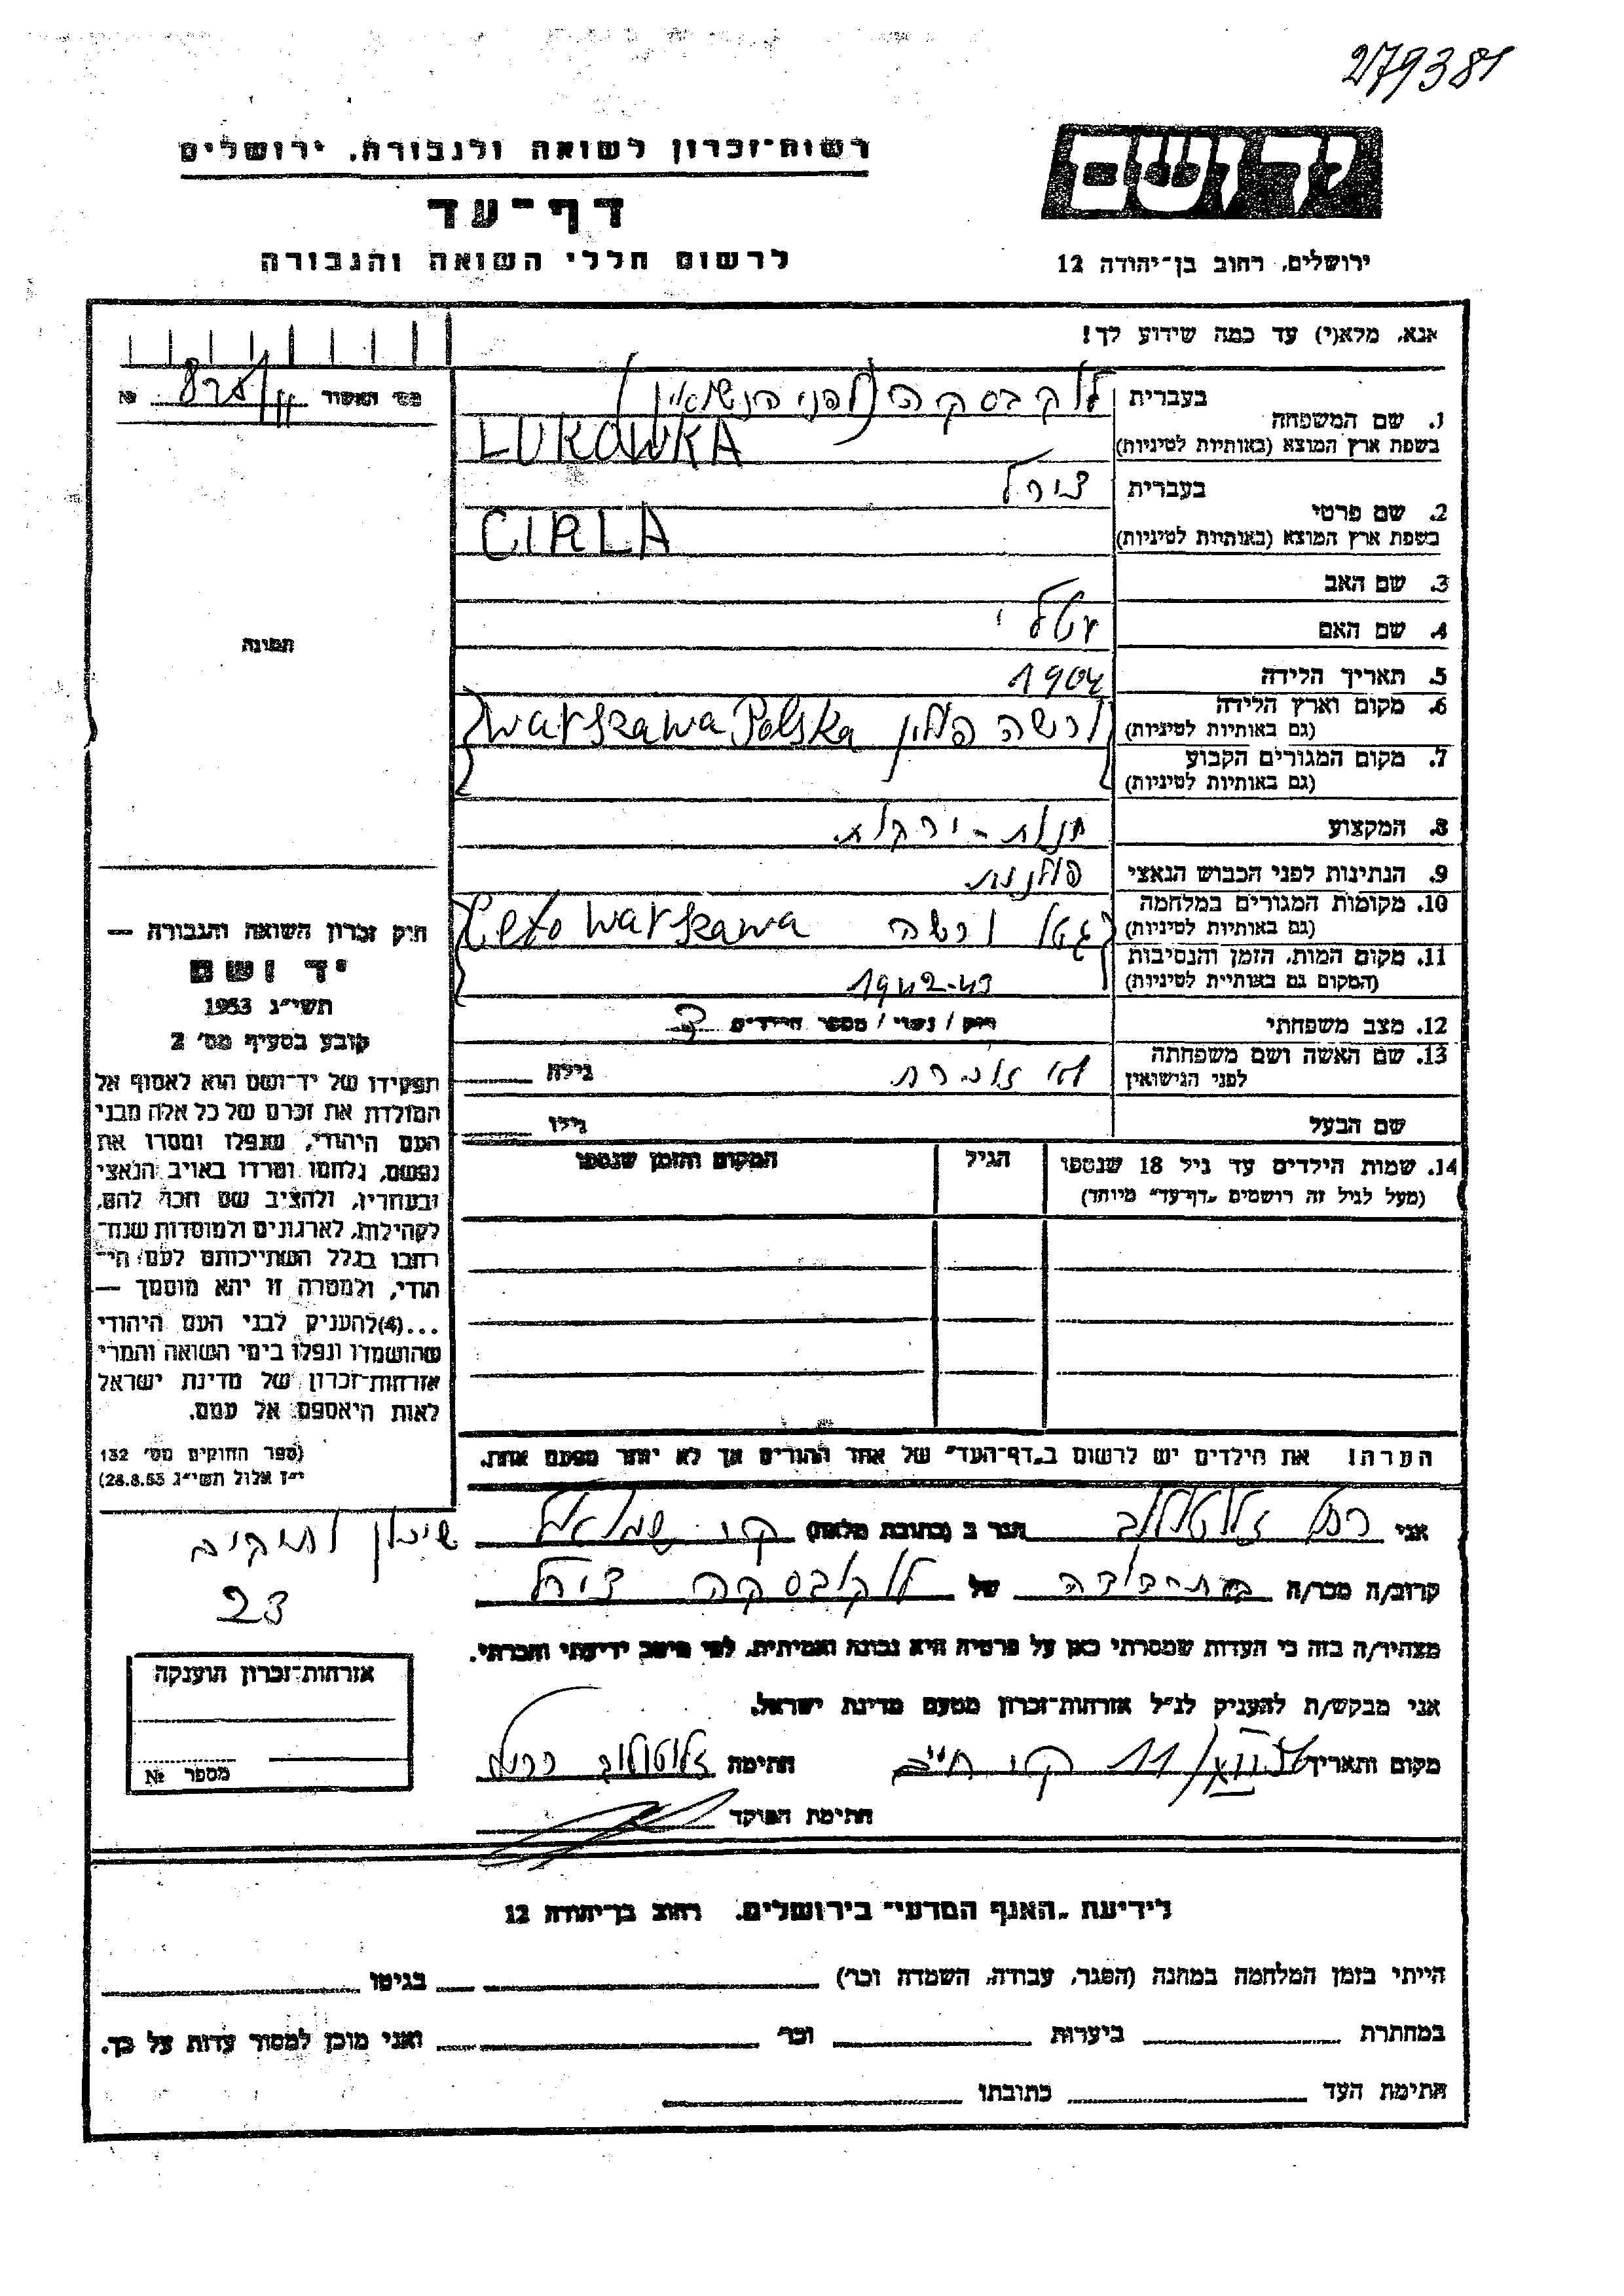 279381
רשות־זכרון לשואה ולגבורה. ירושלים
יד ושם
דף־עד
לרשום חללי השואה והגבורה
ירושלים, רחוב בן־יהודה 12
אנא, מלא(י) עד כמה שידוע לך!
מס׳ האשור №
1. שם המשפחה
בעברית לוקבסקה (לפני הנשואין)
בשפת ארץ המוצא (באותיות לטיניות) LUKAWKA
2. שם פרטי
בעברית צירל
בשפת ארץ המוצא (באותיות לטיניות) CIRLA
3. שם האב
4. שם האם
תמונה
5. תאריך הלידה 1904
6. מקום וארץ הלידה
(גם באותיות לטיניות) ורשה פולין Warszawa Polska
7. מקום המגורים הקבוע
(גם באותיות לטיניות)
8. המקצוע חנות - ירקות
9. הנתינות לפני הכבוש הנאצי פולנית
10. מקומות המגורים במלחמה
(גם באותיות לטיניות) גטו ורשה Geto Warszawa
11. מקום המות, הזמן והנסיבות
(המקום גם באותיות לטיניות) 1942-43
12. מצב משפחתי רוק / נשוי / מספר הילדים
13. שם האשה ושם משפחתה
לפני הנישואין לא זוכרת גילה
שם הבעל גילו
14. שמות הילדים עד גיל 18 שנספו הגיל המקום והזמן שנספו
(מעל לגיל זה רושמים „דף־עד״ מיוחד)
חוק זכרון השואה והגבורה —
יד ושם
תשי״ג 1953
קובע בסעיף מס׳ 2
תפקידו של יד־ושם הוא לאסוף אל
המולדת את זכרם של כל אלה מבני
העם היהודי, שנפלו ומסרו את
נפשם, נלחמו ומרדו באויב הנאצי
ובעוזריו, ולהציב שם וזכר להם,
לקהילות, לארגונים ולמוסדות שנח־
רבו בגלל השתייכותם לעם הי־
הודי, ולמטרה זו יהא מוסמך —
...(4) להעניק לבני העם היהודי
שהושמדו ונפלו בימי השואה והמרי
אזרחות־זכרון של מדינת ישראל
לאות היאספם אל עמם.
(ספר החוקים מס׳ 132
י״ז אלול תשי״ג 28.8.53)
הערה! את הילדים יש לרשום ב„דף־העד״ של אחד ההורים אך לא יותר מפעם אחת.
אני רחל זלוטולוב הגר ב (כתובת מלאה) קרית שמואל שיכון ותיקים
23
קרוב/ה מכר/ה בת דודה של לוקבסקה צירל
מצהיר/ה בזה כי העדות שמסרתי כאן על פרטיה היא נכונה ואמיתית, לפי מיטב ידיעתי והכרתי.
אני מבקש/ת להעניק לנ״ל אזרחות־זכרון מטעם מדינת ישראל.
מקום ותאריך קרית חיים 11 חתימה זלוטולוב רחל
חתימת הפוקד
אזרחות־זכרון הוענקה
מספר №
לידיעת „האגף המדעי״ בירושלים. רחוב בן־יהודה 12
הייתי בזמן המלחמה במחנה (הסגר, עבודה, השמדה וכר׳) בגיטו
במחתרת ביערות וכר׳ ואני מוכן למסור עדות על כך.
חתימת העד כתובתו